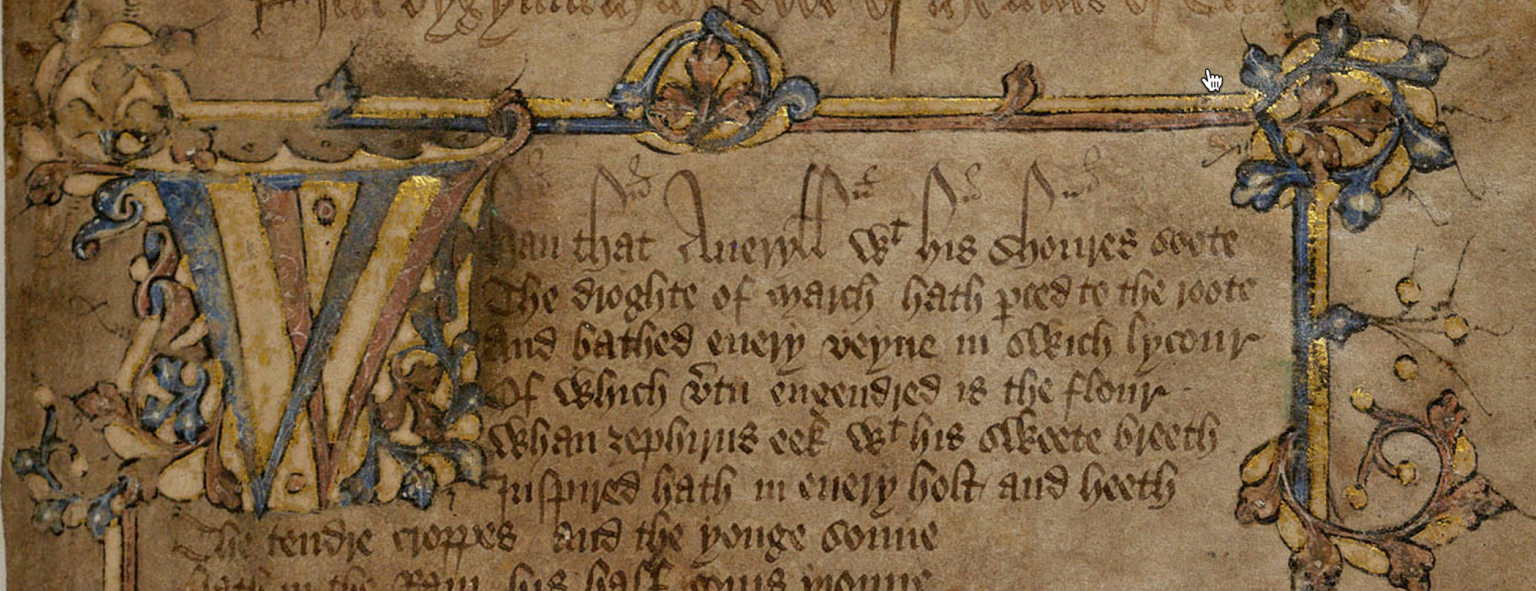 Whan that Aueryll wt his shoures soote
The droghte of march hath pced to the roote
And bathed euery veyne in swich lycour
Of which vtu engendred is the flour
Whan zephirus eek wt his swete breeth
Inspired hath in euery holt and heeth
The tendre croppes and the yonge sonne
hath in the Ram his half cours yronne